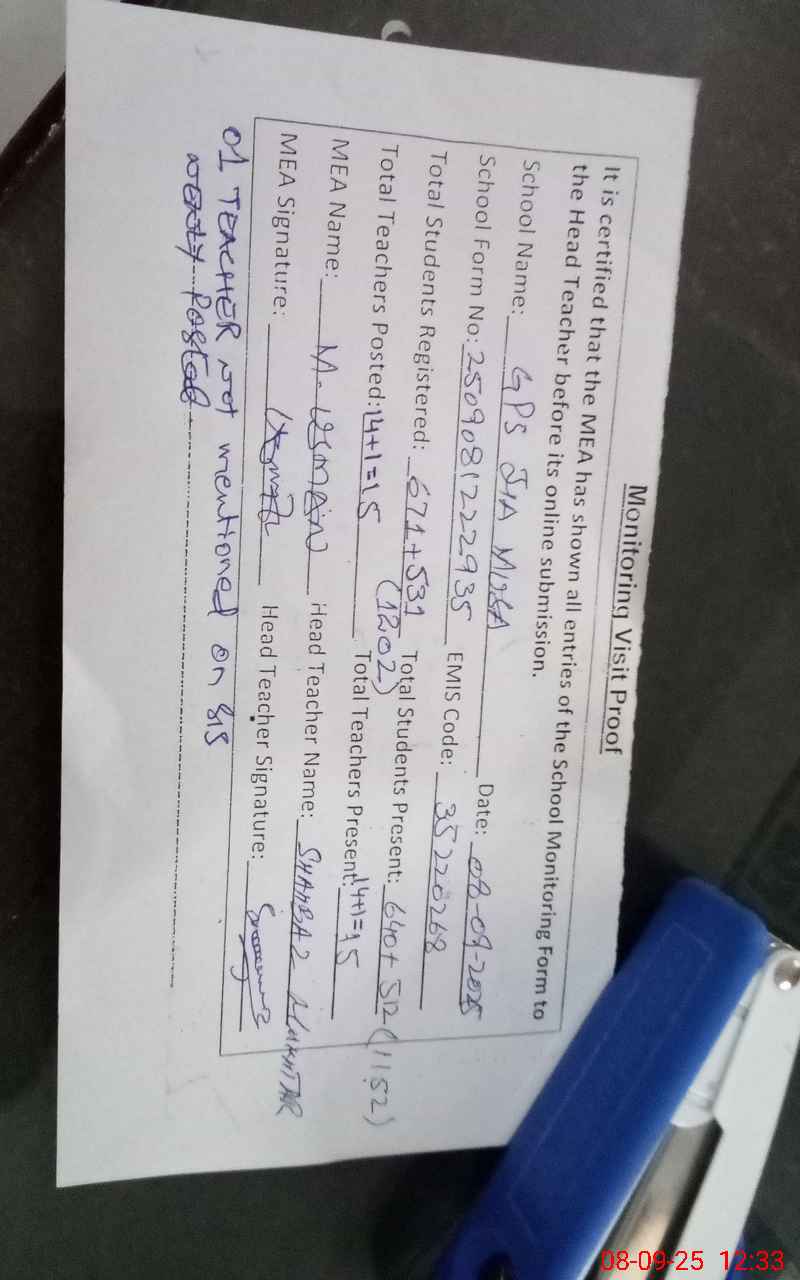 Monitoring Visit Proof
It is certified that the MEA has shown all entries of the School Monitoring Form to
the Head Teacher before its online submission.
School Name: GPS JIA MUSA Date: 08-09-2025
School Form No: 2509081222935 EMIS Code: 35220268
Total Students Registered: 671+531 (1202) Total Students Present: 640+512 (1152)
Total Teachers Posted: 14+1=15 Total Teachers Present: 14+1=15
MEA Name: M. USMAN Head Teacher Name: SHAHBAZ
MEA Signature: Head Teacher Signature:
01 TEACHER not mentioned on SIS
Posted
08-09-25 12:33